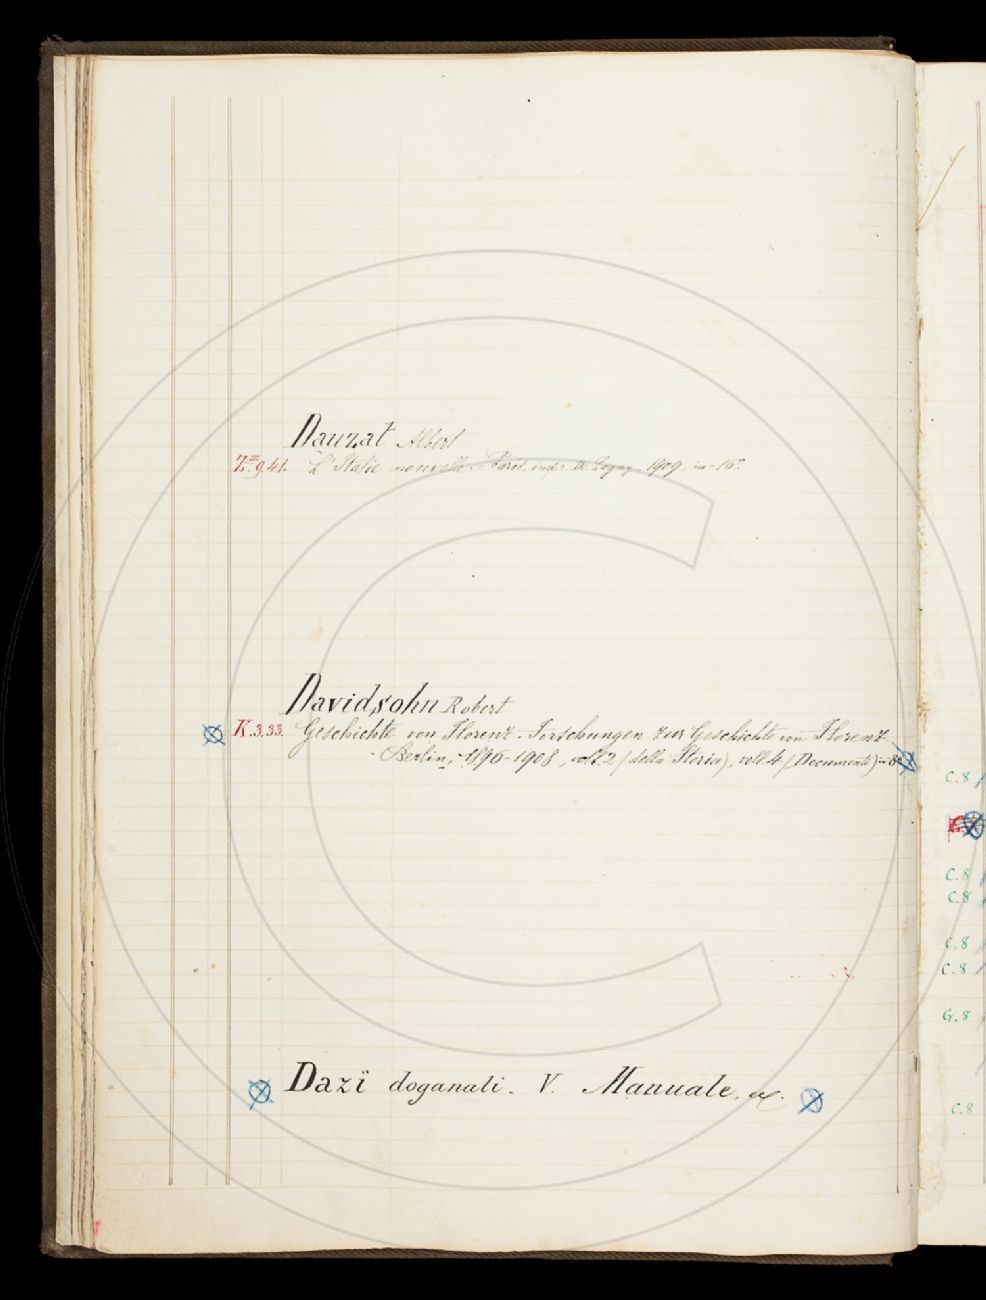 Dauzat Albert
Z.III.9.41. L'Italie nouvelle. - Paris, impr. de Lagny, 1909, in-16°.
Davidsohn Robert
K.3.33. Geschichte von Florenz - Forschungen zur Geschichte von Florenz
- Berlin, 1896-1908, voll. 2 (della Storia), voll. 4 (Documenti) in-8°
Dazï doganali. V. Manuale, ec.
C.8
C.8
C.8
C.8
C.8
G.8
C.8